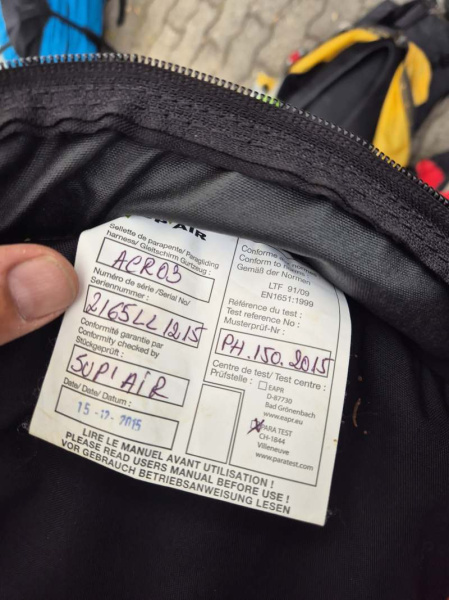 P'AIR
Sellette de parapente/ Paragliding
harness/ Gleitschirm Gurtzeug :
ACRO3
Numéro de série /Serial No/
Seriennummer :
2165LL1215
Conformité garantie par
Conformity checked by
Stückgeprüft :
SUP'AIR
Date/ Date/ Datum :
15-12-2015
Conforme
Conform to
Gemäß der Normen
LTF 91/09
EN1651:1999
Référence du test :
Test reference No :
Musterprüf-Nr :
PH.150.2015
Centre de test/ Test centre :
Prüfstelle :
EAPR
D-87730
Bad Grönenbach
www.eapr.eu
PARA TEST
CH-1844
Villeneuve
www.paratest.com
LIRE LE MANUEL AVANT UTILISATION !
PLEASE READ USERS MANUAL BEFORE USE !
VOR GEBRAUCH BETRIEBSANWEISUNG LESEN